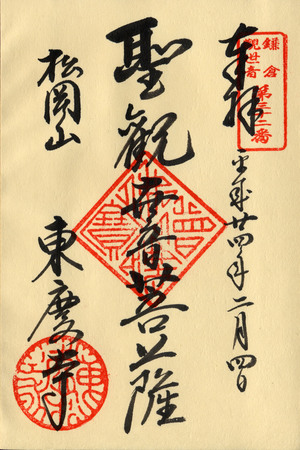 鎌倉
観世音
第三十二番
奉拝
平成廿四年二月四日
聖觀世音菩薩
松岡山
東慶寺